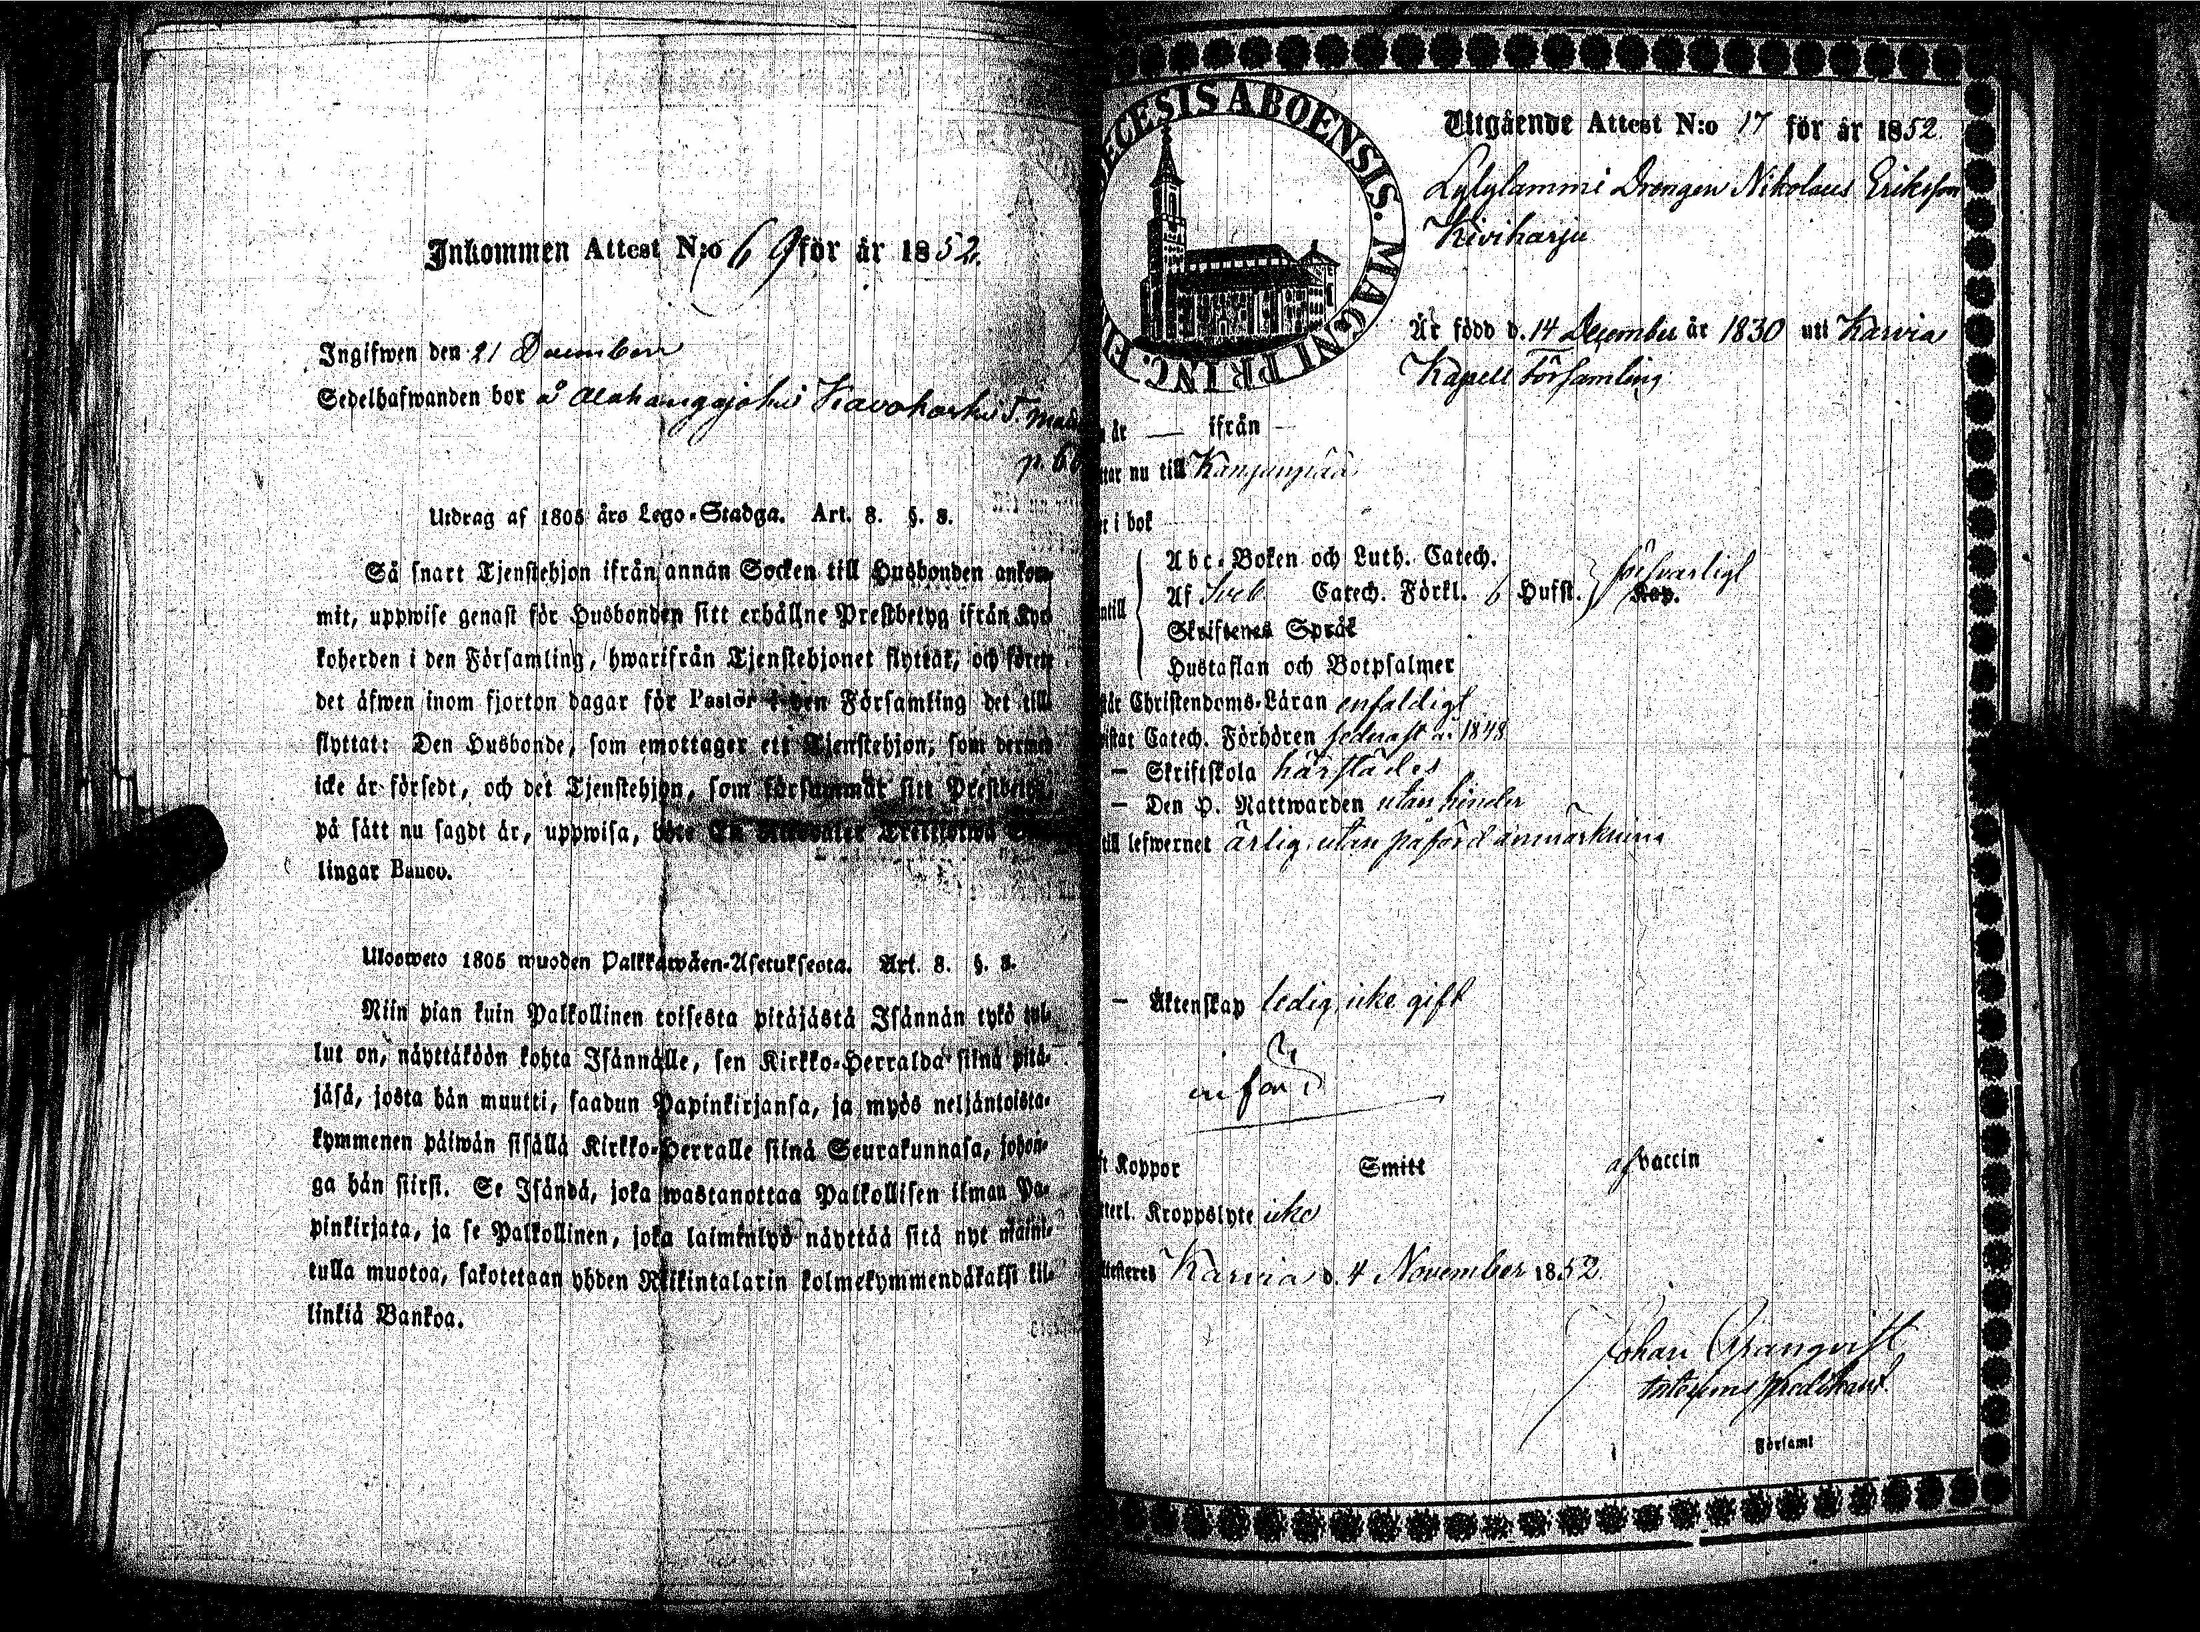 Inkommen Attest N:o 69 för år 1852.
Ingifwen den 21 December
Sedelhafwanden bor å Alahongajoki
p. 6
Utdrag af 1805 års Lego-Stadga. Art. 8. §. 8.
Så snart Tjenstehjon ifrån annan Socken till Husbonden ankom-
mit, uppwise genast för Husbonden sitt erhållne Prestbetyg ifrån Kyr-
koherden i den Församling, hwarifrån Tjenstehjonet flyttat, och förete
det äfwen inom fjorton dagar för Pastor i den Församling det till
flyttat: Den Husbonde, som emottager ett Tjenstehjon, som dermed
icke är försedt, och det Tjenstehjon, som försummar sitt Prestbetyg,
på sätt nu sagdt är, uppwisa, böte En Riksdaler Trettiotwå Skil-
lingar Banco.
Uloosweto 1805 wuoden Palkkawäen-Asetuksesta. Art. 8. §. 8.
Niin pian kuin Palkollinen toisesta pitäjästä Isännän tykö tul-
lut on, näyttäköön kohta Isännälle, sen Kirkko-Herralda siinä pitä-
jäsä, josta hän muutti, saadun Papinkirjansa, ja myös neljäntoista-
kymmenen päiwän sisällä Kirkko-Herralle siinä Seurakunnasa, johon-
ga hän siirsi. Se Isändä, joka wastanottaa Palkollisen ilman Pa-
pinkirjata, ja se Palkollinen, joka laiminlyö näyttää sitä nyt maini-
tulla muotoa, sakotetaan yhden Riikintalarin kolmekymmendäkaksi kil-
linkiä Bankoa.
ECESIS ABOENSIS. MAGNI PRINC. F
Utgående Attest N:o 17 för år 1852.
Lylylammi Drengen Nikolaus Eriksson
Kiviharju
Är född d. 14 December år 1830 uti Karvia
Kapell Församling
år — ifrån —
ttar nu till Kankanpää
i bok
Abc-Boken och Luth. Catech.
Af Sveb Catech. Förkl. 6 Hufst. försvarligt Kap.
antill
Skriftenes Språk
Hustaflan och Botpsalmer
tår Christendoms-Läran enfaldigt
istat Catech. Förhören sednast år 1848
— Skriftskola härstädes
— Den H. Nattwarden utan hinder
till lefwernet ärlig, utan påförd anmärkning
— Äktenskap ledig, icke gift
ft Koppor Smitt af vaccin
tterl. Kroppslyte icke
ttesteres Karvia d. 4 November 1852.
Johan Granqvist
interims predikant.
i Församl